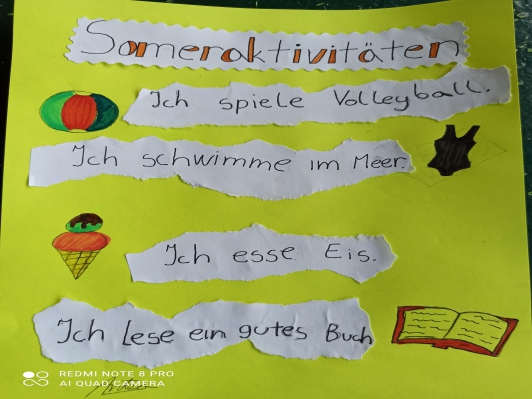 Someraktivitäten
Ich spiele Volleyball.
Ich schwimme im Meer.
Ich esse Eis.
Ich lese ein gutes Buch
REDMI NOTE 8 PRO
AI QUAD CAMERA